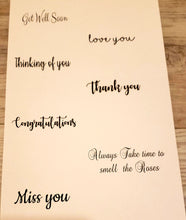 Get Well Soon
love you
Thinking of you
Thank you
Congratulations
Always Take time to
smell the Roses
Miss you